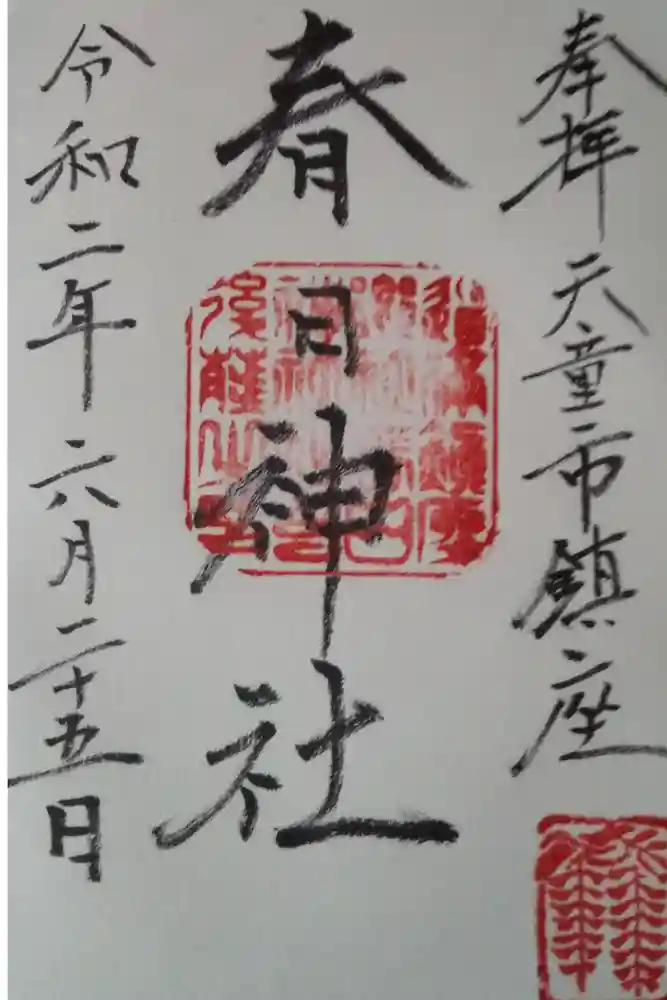 奉拝 天童市鎮座
春日神社
令和二年六月二十五日